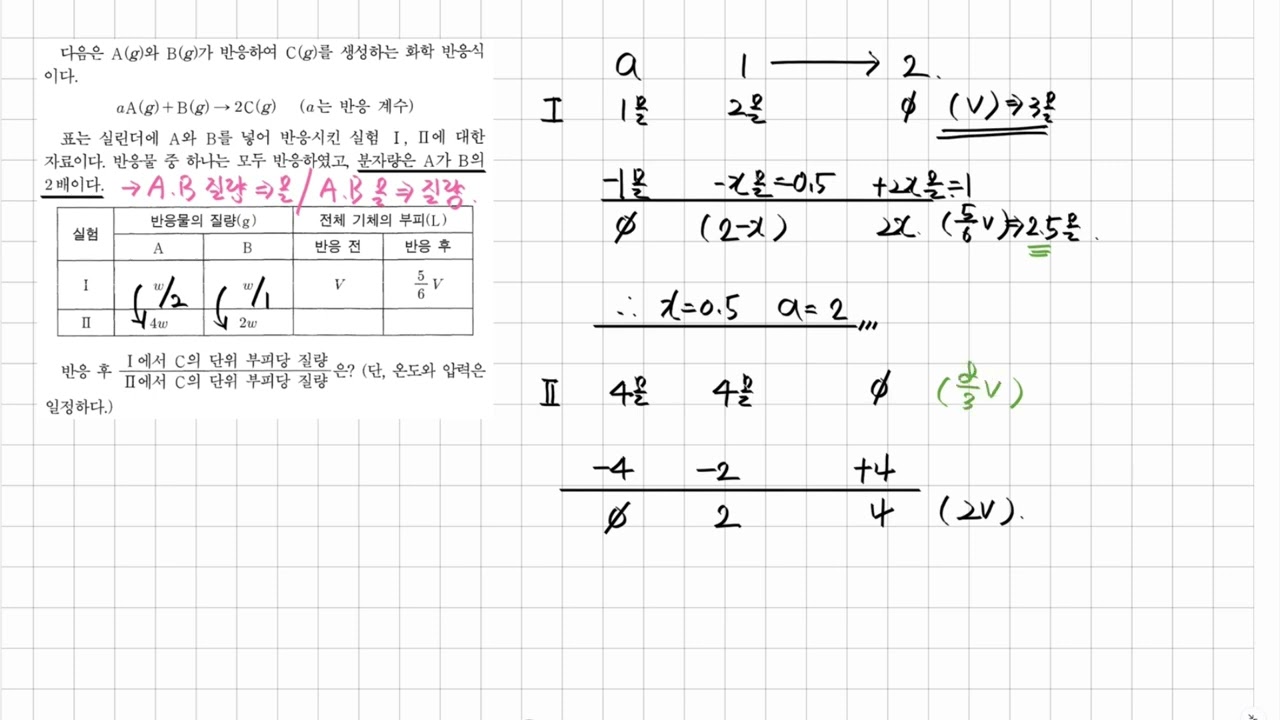 다음은 A(g)와 B(g)가 반응하여 C(g)를 생성하는 화학 반응식
이다.
aA(g)+B(g)→2C(g) (a는 반응 계수)
표는 실린더에 A와 B를 넣어 반응시킨 실험 Ⅰ, Ⅱ에 대한
자료이다. 반응물 중 하나는 모두 반응하였고, 분자량은 A가 B의
2배이다. → A.B 질량 ⇒ 몰 / A.B 몰 ⇒ 질량.
실험 반응물의 질량(g) 전체 기체의 부피(L)
A B 반응 전 반응 후
Ⅰ w/2 w/1 V 5/6 V
Ⅱ 4w 2w
반응 후 Ⅰ에서 C의 단위 부피당 질량 / Ⅱ에서 C의 단위 부피당 질량 은? (단, 온도와 압력은
일정하다.)
a 1 → 2.
Ⅰ 1몰 2몰 ∅ (V)⇒3몰
-1몰 -x몰=0.5 +2x몰=1
∅ (2-x) 2x. (5/6 V)⇒2.5몰.
∴ x=0.5 a=2
Ⅱ 4몰 4몰 ∅ (8/3 V)
-4 -2 +4
∅ 2 4 (2V).